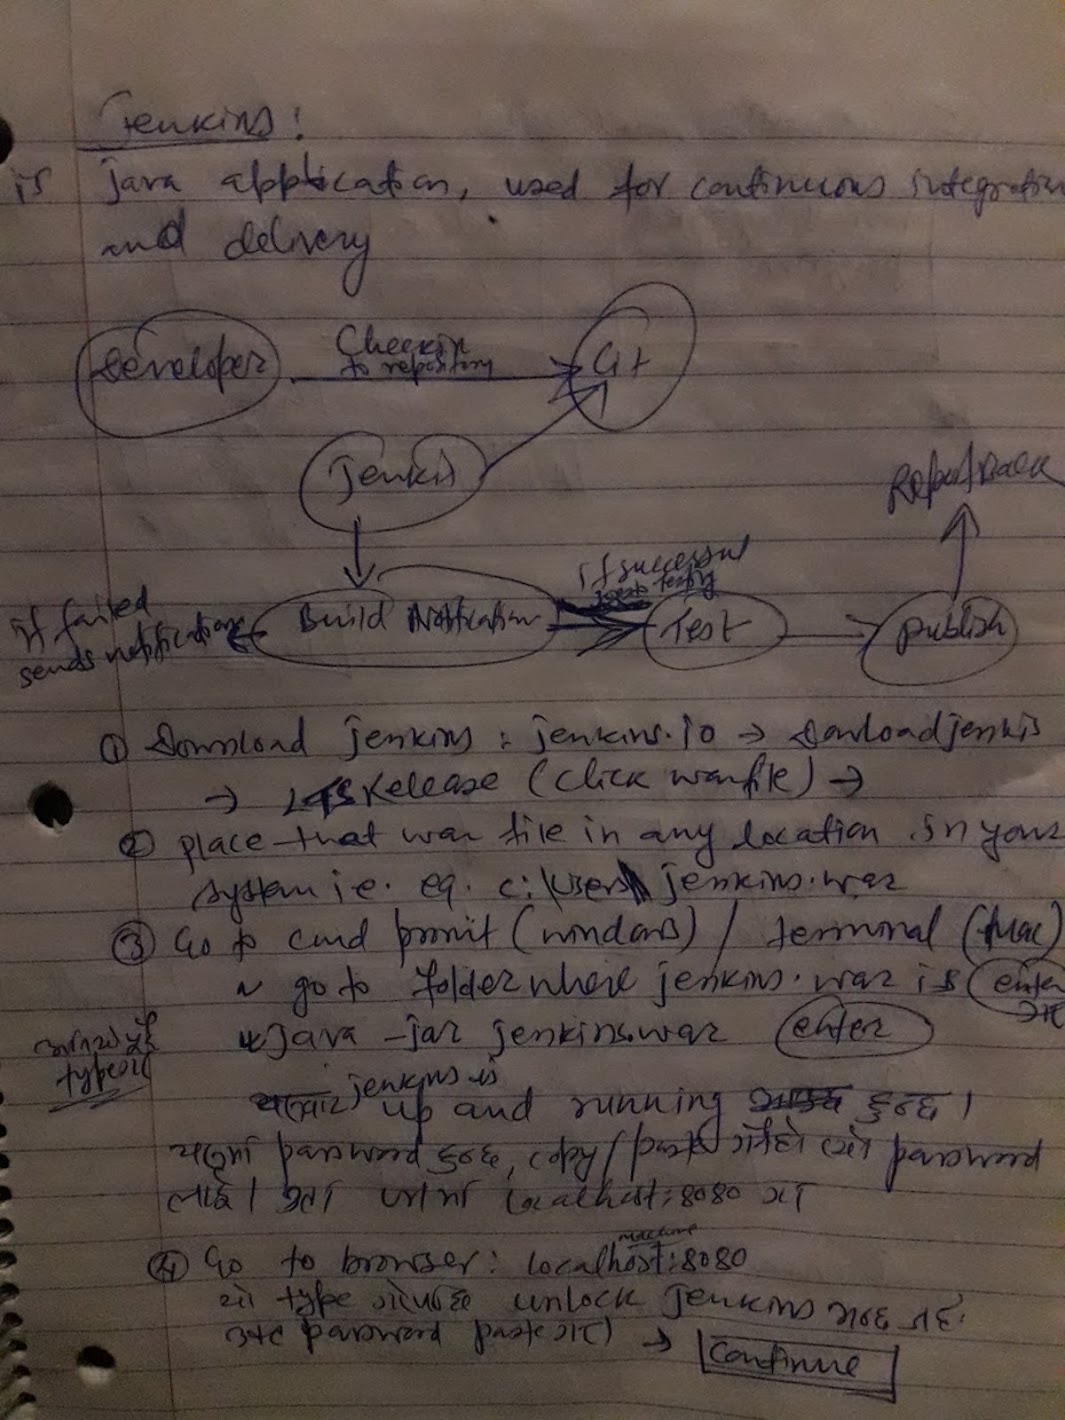 Jenkins:
is java application, used for continuous integration
and delivery
Developer
Checkin
to repository
Git
Jenkis
if successful
Build Notification
Test
publish
if failed
sends notification
① Download jenkins : jenkins.io → Donloadjenkis
→ LTS Release (click war file) →
② place that war file in any location in your
system ie. eg. c:\Users\ jenkins.war
③ Go to cmd promt (windows) / terminal (Mac)
go to folder where jenkins.war is enter
java -jar jenkins.war enter
type
jenkins is
up and running हुन्छ।
password हुन्छ, copy/paste password
localhost:8080 मा
④ Go to browser: localhost:8080
machine
यो type unlock Jenkins
password paste → Continue